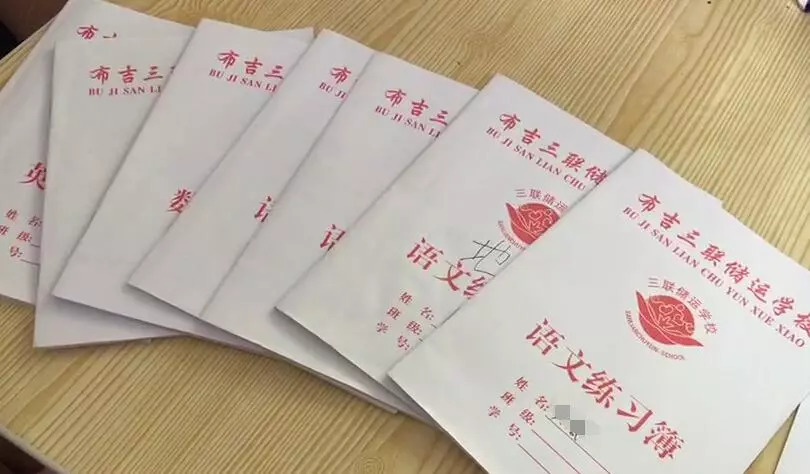 布
英
姓名:
班级:
学号:
布吉三
BU JI SAN
布吉三联
BU JI SAN LIAN
数
布
BU JI
语
布吉三
BU JI SAN
语
布吉三联储
BU JI SAN LIAN CHU
三联储运
语文练
地
姓名:
班级:
学号:
布吉三联储运学校
BU JI SAN LIAN CHU YUN XUE XIAO
三联储运学校
SANLIANCHUYUN-SCHOOL
语文练习簿
姓名:
班级:
学号: